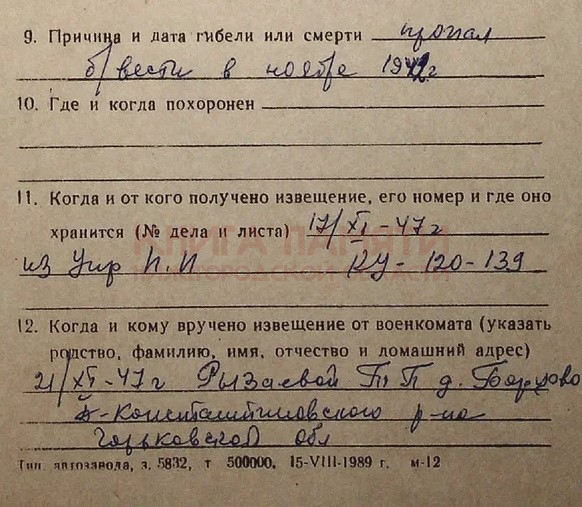 9. Причина и дата гибели или смерти пропал
б/вести в ноябре 1942г
10. Где и когда похоронен
11. Когда и от кого получено извещение, его номер и где оно
хранится (№ дела и листа) 17/XI-47г
КНИГА ПАМЯТИ
НИЖЕГОРОДСКОЙ ОБЛАСТИ
из Упр П.П КУ-120-139
12. Когда и кому вручено извещение от военкомата (указать
родство, фамилию, имя, отчество и домашний адрес)
21/XI-47г Рызаевой П д.
Д-Константиновского р-на
Горьковской обл
Тип. автозавода, з. 5832, т 500000. 15-VIII-1989 г. м-12